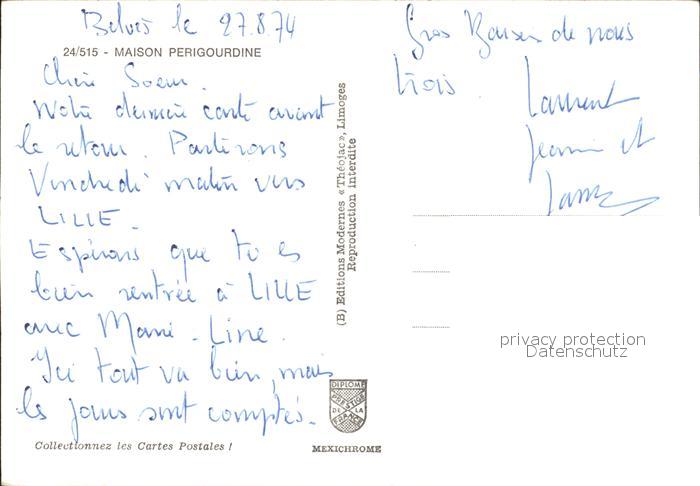 Belvès le 27.8.74
24/515 - MAISON PERIGOURDINE
Chère Soeur.
Notre dernière carte avant
le retour. Partirons
Vendredi matin vers
LILLE.
Espérons que tu es
bien rentrée à LILLE
avec Marie-Line.
Ici tout va bien, mais
les jours sont comptés.
Collectionnez les Cartes Postales !
(B) Editions Modernes «Théojac», Limoges
Reproduction Interdite
DIPLOME
PRESTIGE
DE LA
FRANCE
MEXICHROME
Gros Baisers de nous
trois.
Laurent
Jeannine et
privacy protection
Datenschutz